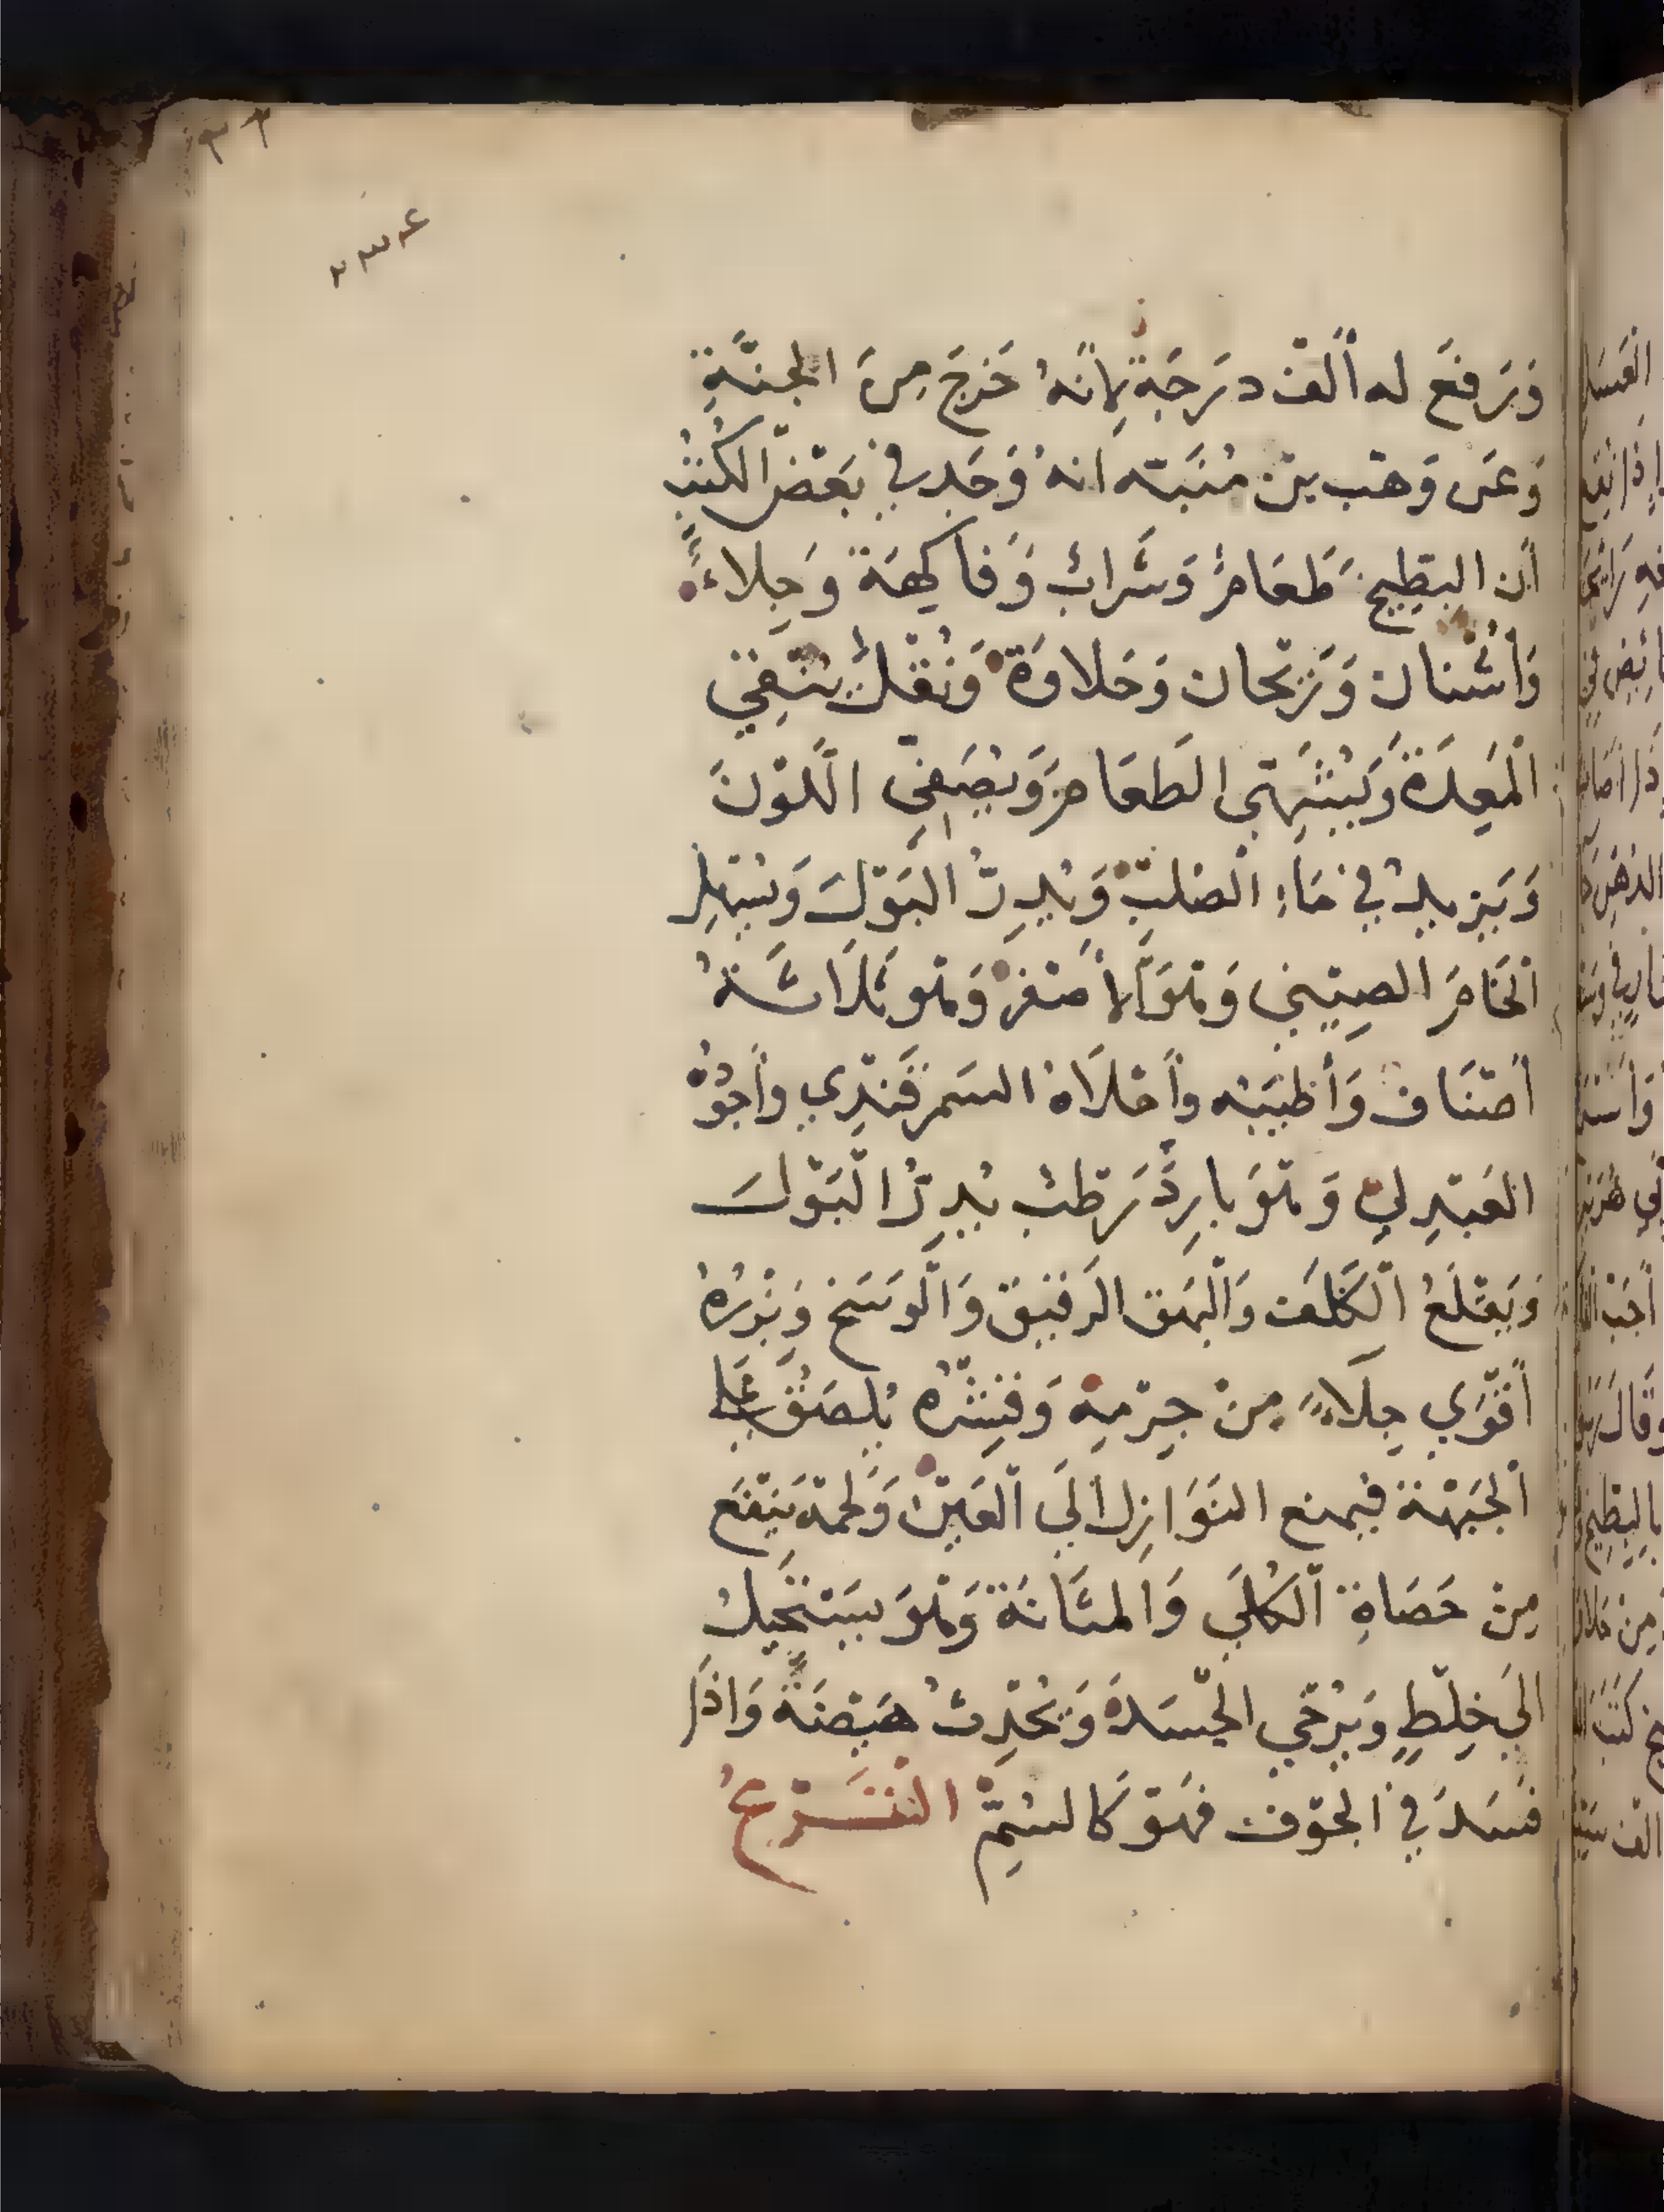 ٣٣
٢٣٤
وَرَفَعَ له أَلْف دَرَجَةٍ لِأَنَّهُ خَرَجَ مِنَ الجَنَّةِ
وَعَن وَهْب بن مُنَبّه انهُ وَجَد في بَعْضِ الكُتُبِ
أن البطِيخ طَعَامٌ وَشَرابٌ وَفاكِهَة وَجِلاءٌ
وَأُشْنان وَرَيْحان وَحَلاوَة وَنُقْلٌ يُنَقِّي
الْمَعِدَةَ وَيُشَهِّي الطَعَامَ وَيُصَفِّي اللَّوْنَ
وَيَزيدُ في مَاءِ الصُلْبِ وَيُدِرُّ البَوْلَ وَيُسَهِّل
الخَامَ الصِيني وَهُوَ الأَصْفَرُ وَهُو ثَلَاثَةُ
أَصْنَاف وَأَطْيَبُه وأَحْلَاهُ السَمَرقَنْدِي وأَجْوَدُهُ
العَبْدِلي وَهْوَ بارِدٌ رَطْبٌ يُدِرُّ الْبَوْلَ
وَيَقْلَعُ الْكَلَف وَالْبَهَق الرَقيق وَالْوَسَخ وَبِزْرُهُ
أَقْوَي جِلَاءً مِنْ جِرْمِهِ وَقِشْرُه يُلصَقُ عَلي
الْجَبْهَة فيمنع النَوَازِل الَي الْعَيْن وَلحمه يَنْفَع
مِنْ حَصَاةِ الْكُلَي وَالمثَانَة وَهْوَ يَسْتَحِيلُ
الَي خِلْطٍ وَيُرْخي الجَسَدَ وَيُحْدِثُ هَيْضَةً وَاذَا
فسَدَ في الجَوْف فَهْوَ كَالسُمِّ التَّشرْعُ